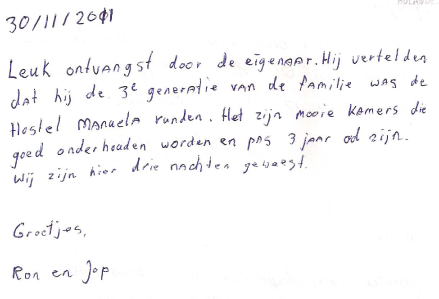 30/11/2011
Leuk ontvangst door de eigenaar. Hij vertelden
dat hij de 3e generatie van de familie was de
Hostel Manuela runden. Het zijn mooie kamers die
goed onderhouden worden en pas 3 jaar od zijn.
Wij zijn hier drie nachten geweest.
Groetjes,
Ron en Jop